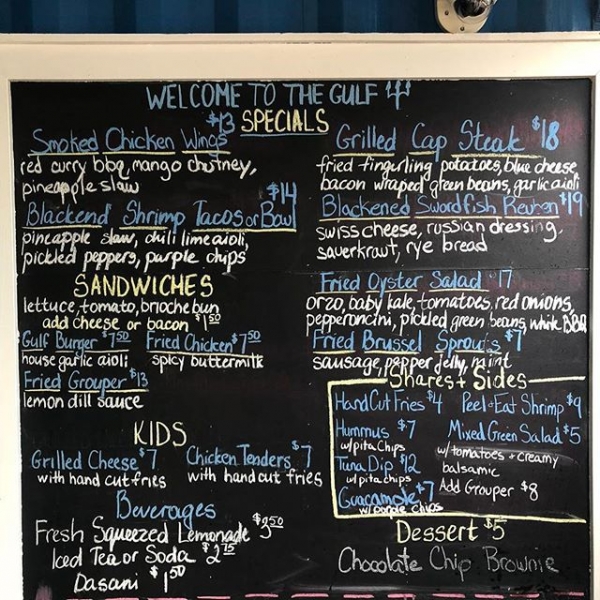 WELCOME TO THE GULF
SPECIALS
Smoked Chicken Wings $13
red curry bbq, mango chutney,
pineapple slaw
Blackend Shrimp Tacos or Bowl $14
pincapple slaw, chili lime aioli,
pickled peppers, purple chips
Grilled Cap Steak $18
fried fingurling potatoes, blue cheese
bacon wraped green beans, garlic aioli
Blackened Swordfish Reuben $19
swiss cheese, russian dressing,
sauerkraut, rye bread
Fried Oyster Salad $17
orzo, baby kale, tomatoes, red onions,
pepperoncini, pickled green beans, white BBQ
Fried Brussel Sprouts $7
sausage, pepper jelly, mint
SANDWICHES
lettuce, tomato, brioche bun
add cheese or bacon $1 50
Gulf Burger $7 50
house garlic aioli
Fried Chicken $7 50
spicy buttermilk
Fried Grouper $13
lemon dill sauce
KIDS
Grilled Cheese $7
with hand cut fries
Chicken Tenders $7
with hand cut fries
Beverages
Fresh Squeezed Lemonade $3 50
Iced Tea or Soda $2 75
Dasani $1 50
Shares + Sides
Hand Cut Fries $4
Hummus $7
w/pita Chips
Tuna Dip $12
w/pita chips
Guacamole $7
w/ purple chips
Peel + Eat Shrimp $9
Mixed Green Salad $5
w/tomatoes + creamy
balsamic
Add Grouper $8
Dessert $5
Chocolate Chip Brownie